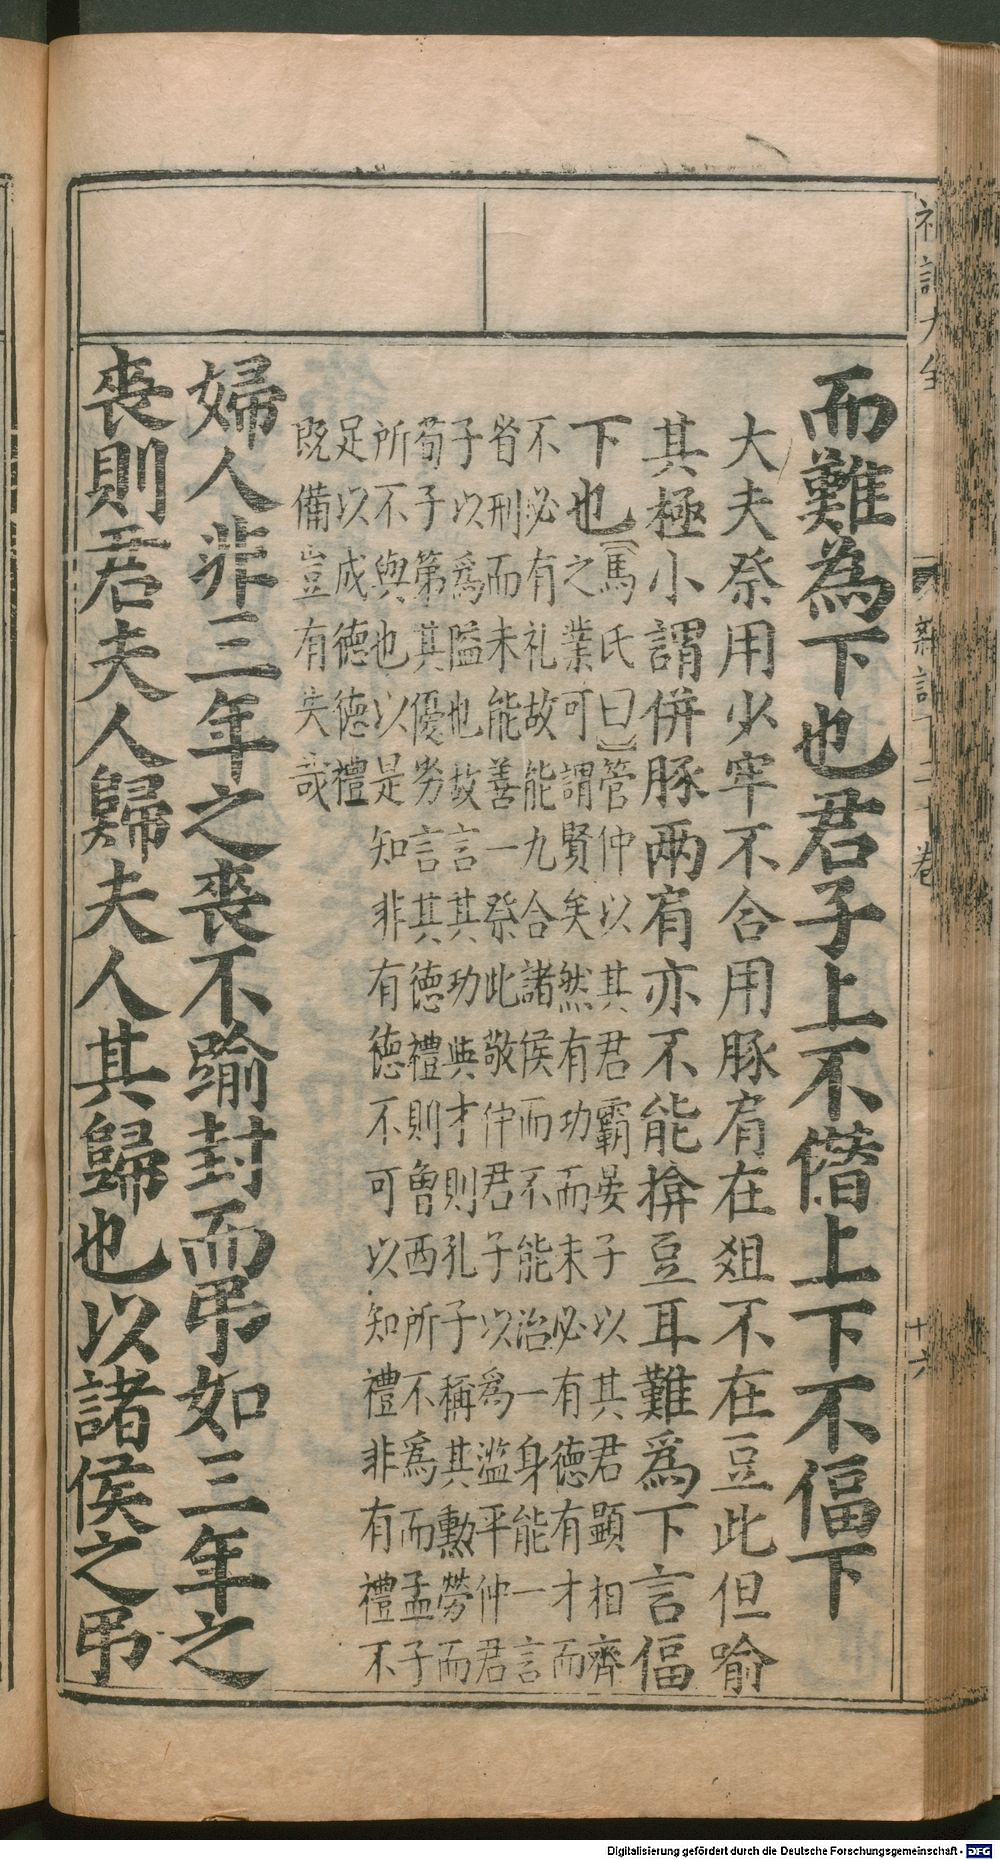 礼記大全
十六
而難為下也君子上不僭上下不偪下
大夫祭用少牢不合用豚肩在爼不在豆此但喻
其極小謂併豚兩肩亦不能揜豆耳難爲下言偪
下也【馬氏曰】管仲以其君霸晏子以其君顯相齊
之業可謂賢矣然有功而未必有德有才而
不必有礼故能九合諸侯而不能治一身能一言
省刑而未能善一祭此敬仲君子以爲濫平仲君
子以爲隘也故言其功與才則孔子稱其勲勞而
荀子第其優劣言其德禮則曾西所不爲而孟子
所不與也以是知非有德不可以知禮非有禮不
足以成德德禮
既備豈有失哉
婦人非三年之喪不踰封而弔如三年之
喪則君夫人歸夫人其歸也以諸侯之弔
Digitalisierung gefördert durch die Deutsche Forschungsgemeinschaft - DFG